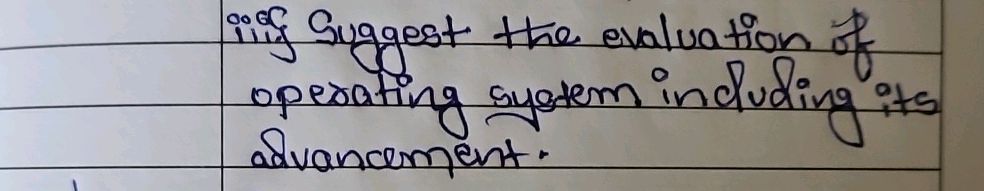 iii) Suggest the evaluation of
operating system including its
advancement.